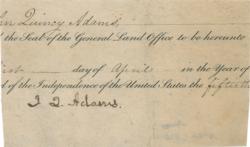 hn Quincy Adams,
the Seal of the General Land Office to be hereunto
first day of April in the Year of
d of the Independence of the United States the fifteeth
J. Q. Adams.